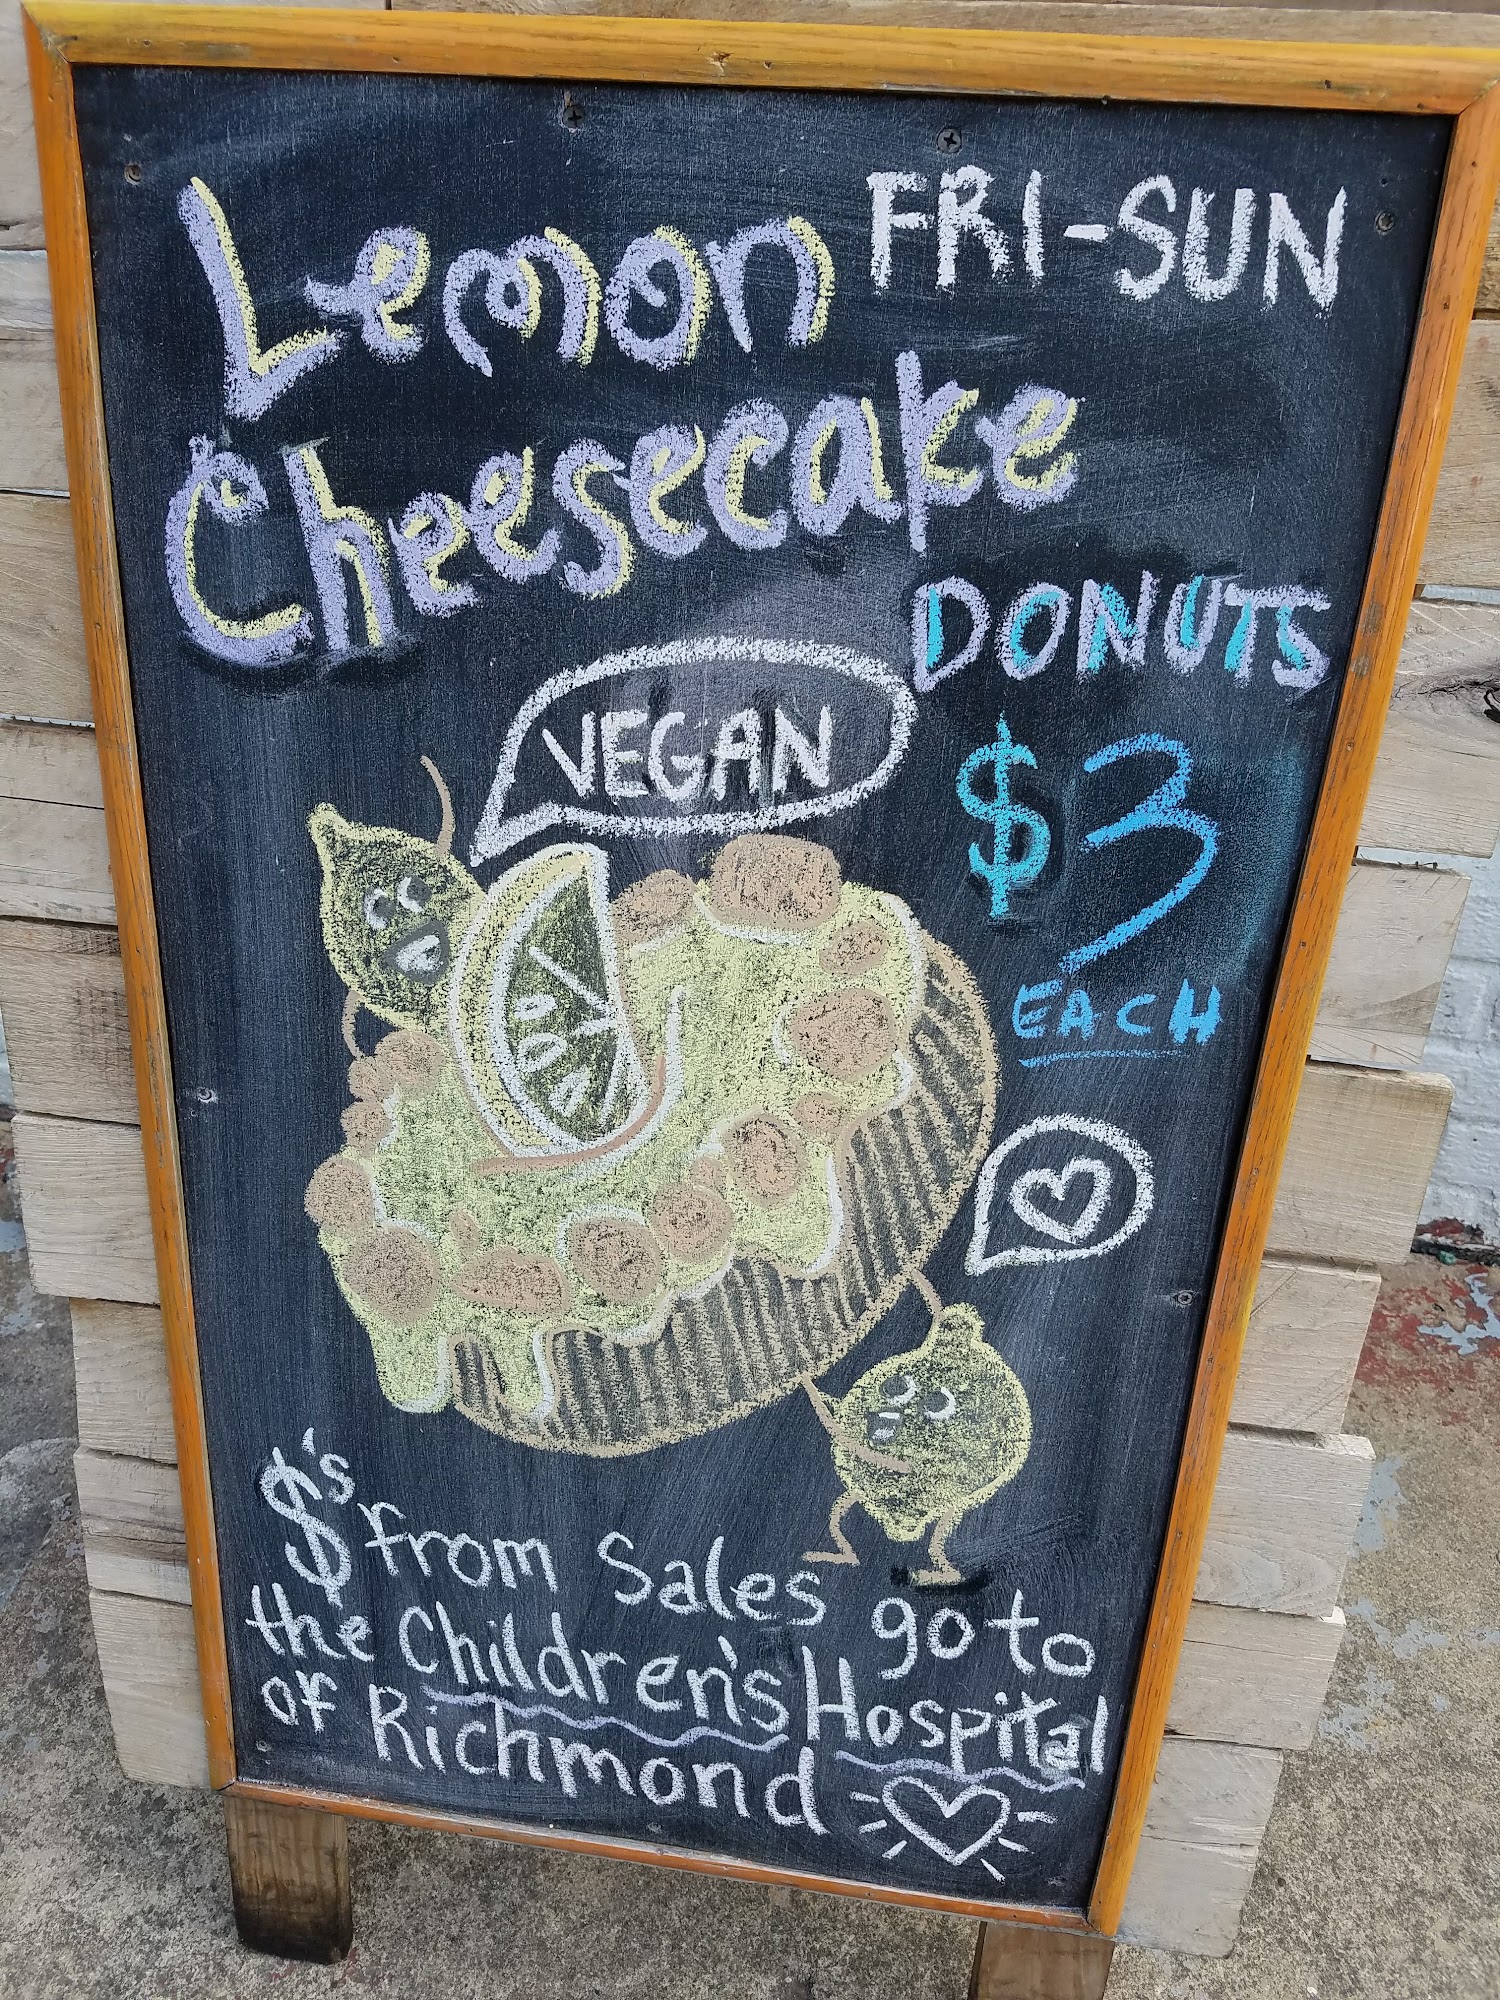 Lemon
FRI-SUN
Cheesecake
DONUTS
VEGAN
$3
EACH
$'s from Sales go to
the Children's Hospital
of Richmond